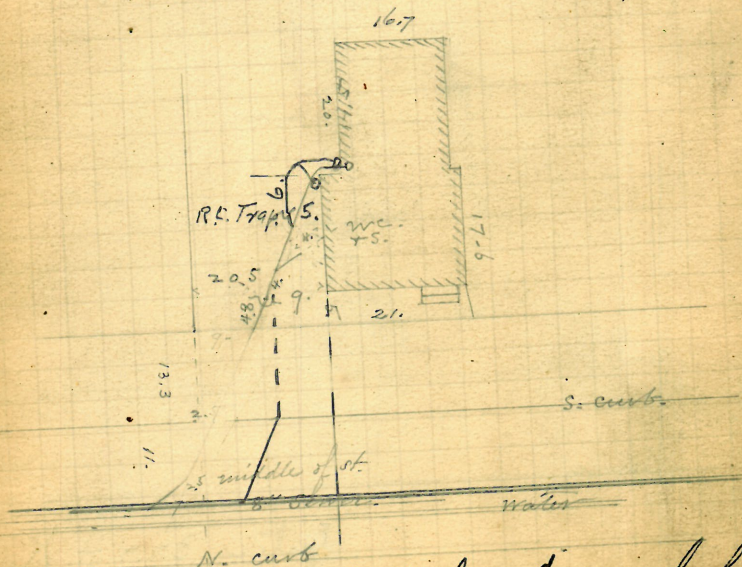 16.7
20.
6.
R.L. Trap
5.
W.C.
+ S.
17.6
20,5
9.
21.
13.3
2.
S. curb.
11.
middle of st.
8" Sewer.
Water
N. curb